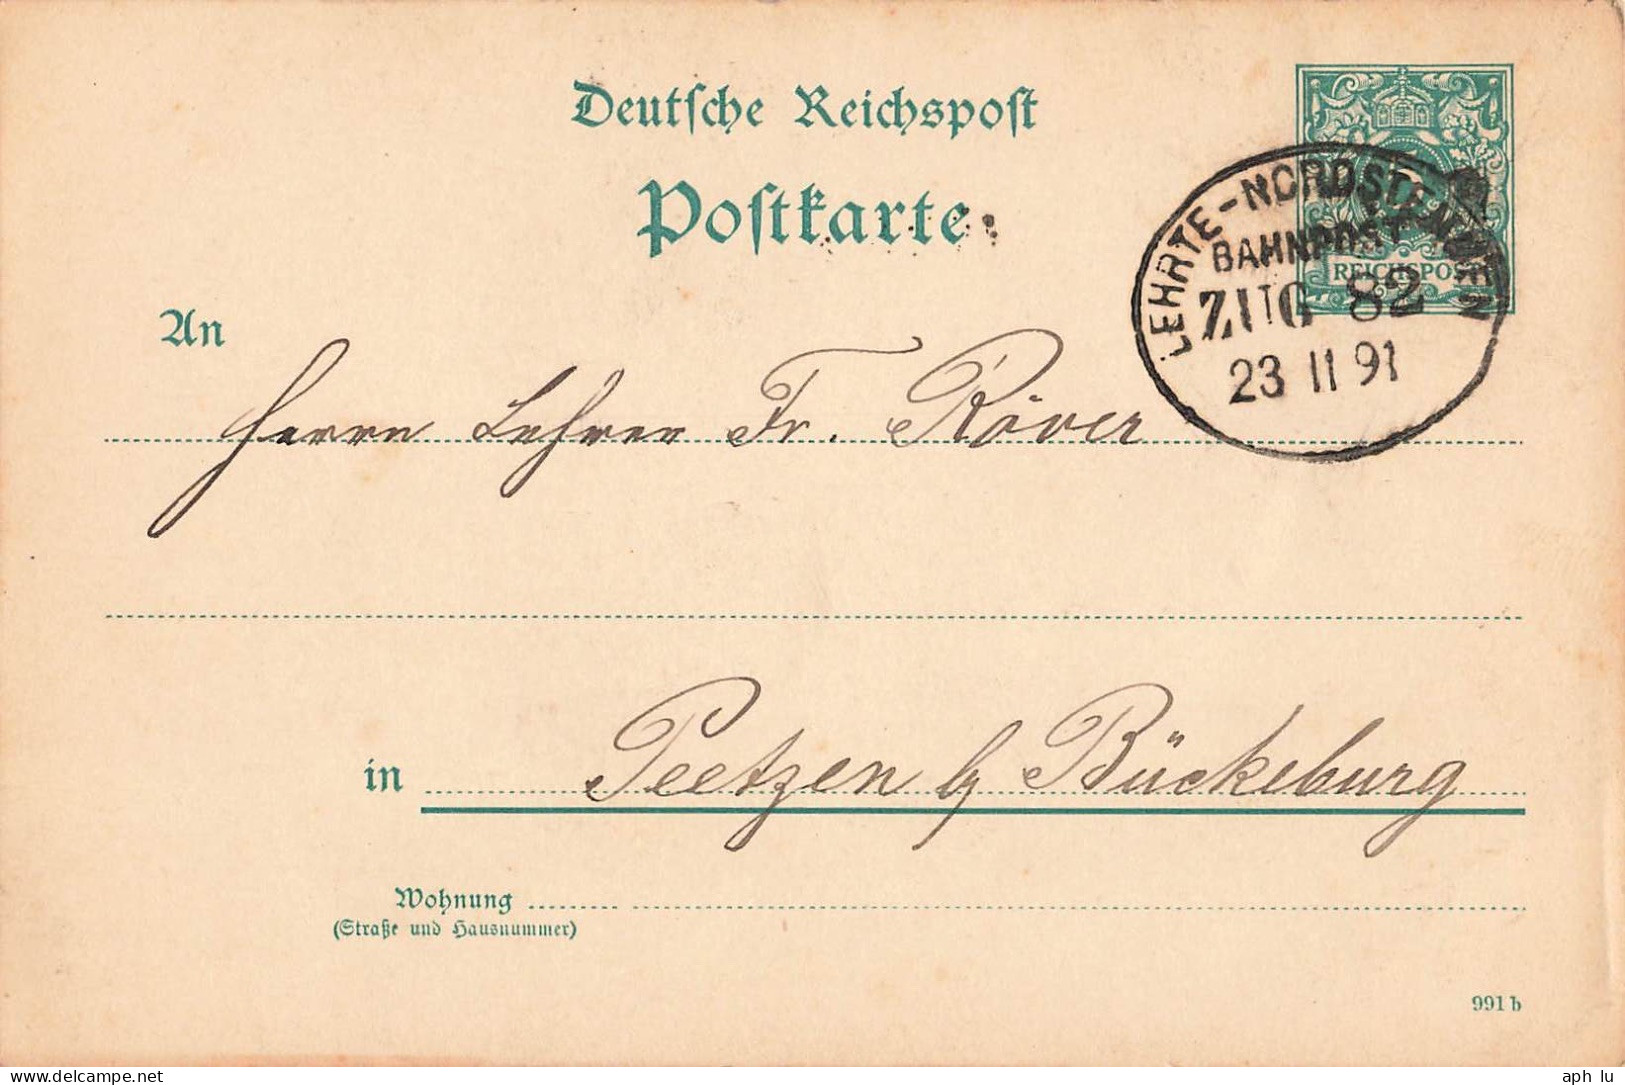 Deutsche Reichspost
Postkarte
5
REICHSPOST
LEHRTE-NORDSTEMMEN
BAHNPOST
ZUG 82
23 11 91
An
Herrn Lehrer Fr. Röver
in Peetzen b/ Bückeburg
Wohnung
(Straße und Hausnummer)
991 b
aph lu